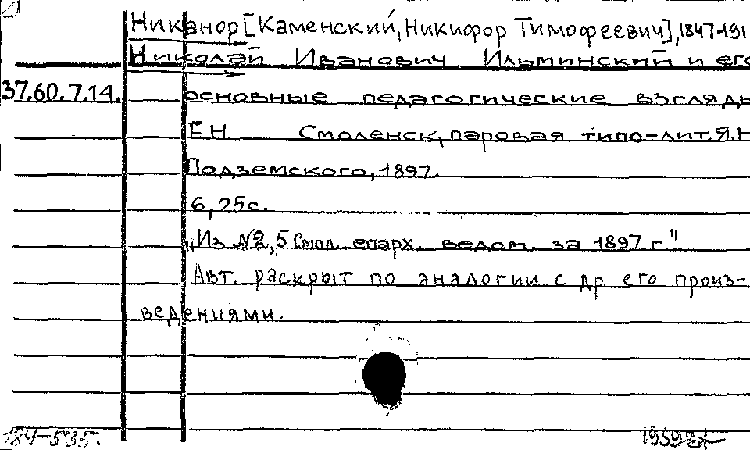 Никанор [Каменский, Никифор Тимофеевич], 1847-191
Николай Иванович Ильминский и его
37.60.7.14. основные педагогические взгляды
[Н Смоленск, паровая типо-лит. Я.Н
Подземского, 1897.
6, 25с.
„Из №2,5 Смол. епарх. ведом. за 1897 г"
Авт. раскрыт по аналогии с др его произ-
ведениями.